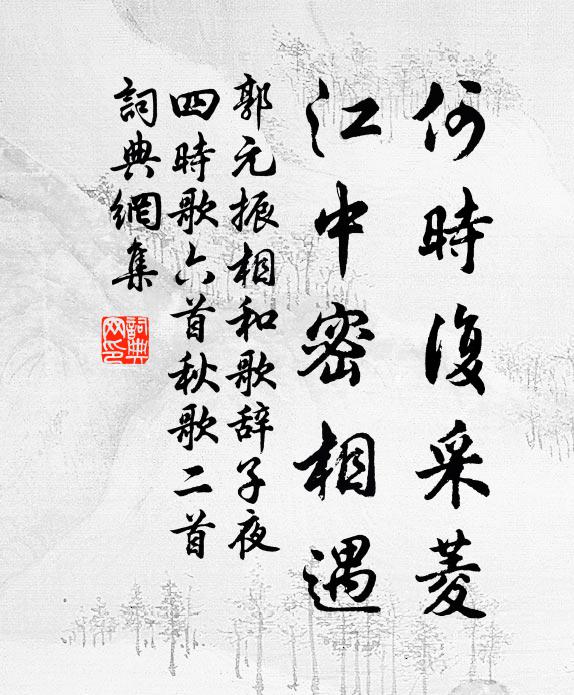 何時復采菱
江中密相遇
郭元振相和歌辞子夜
四時歌六首秋歌二首
詞典網集
詞典网印